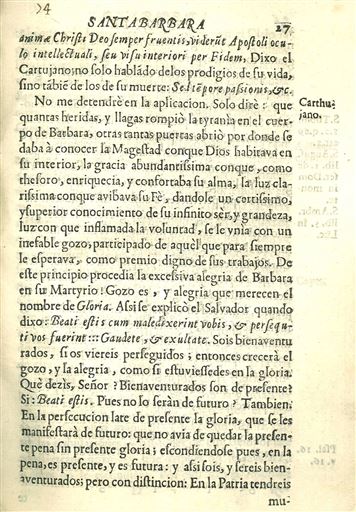 74
SANTA BARBARA
27
animæ Christi Deo semper fruentis, viderũt Apostoli ocu-
lo intellectuali, seu visu interiori per Fidem, Dixo el
Cartujano; no solo hablãdo de los prodigios de su vida,
sino tãbiẽ de los de su muerte: Sed tẽpore passionis, &c.
No me detendrè en la aplicacion. Solo dirè: que
Carthu-
jano.
quantas heridas, y llagas rompiò la tyranìa en el cuer-
po de Barbara, otras tantas puertas abriò por donde se
daba à conocer la Magestad conque Dios habitava en
su interior, la gracia abundantissima conque, como
thesoro, enriquecia, y confortaba su alma, la luz cla-
rissima conque avibava su Fè, dandole un certissimo,
y superior conocimiento de su infinito sèr, y grandeza,
luz con que inflamada la voluntad, se le vnìa con un
inefable gozo, participado de aquèl que para siempre
le esperava, como premio digno de sus trabajos. De
este principio procedia la excessiva alegria de Barbara
en su Martyrio! Gozo es, y alegria que merecen el
nombre de Gloria. Assi se explicò el Salvador quando
dixo: Beati estis cum maledixerint vobis, & persequ-
ti vos fuerint::: Gaudete, & exultate. Sois bienaventu
rados, si os viereis perseguidos; entonces crecerà el
gozo, y la alegria, como si estuviessedes en la gloria.
Què dezìs, Señor? Bienaventurados son de presente?
Si: Beati estis. Pues no lo seràn de futuro? Tambien.
En la persecucion late de presente la gloria, que se les
manifestarà de futuro: que no avia de quedar la presen-
te pena sin presente gloria; escondiendose pues, en la
pena, es presente, y es futura: y assi sois, y sereis bien-
aventurados; pero con distincion: En la Patria tendreis
mu-